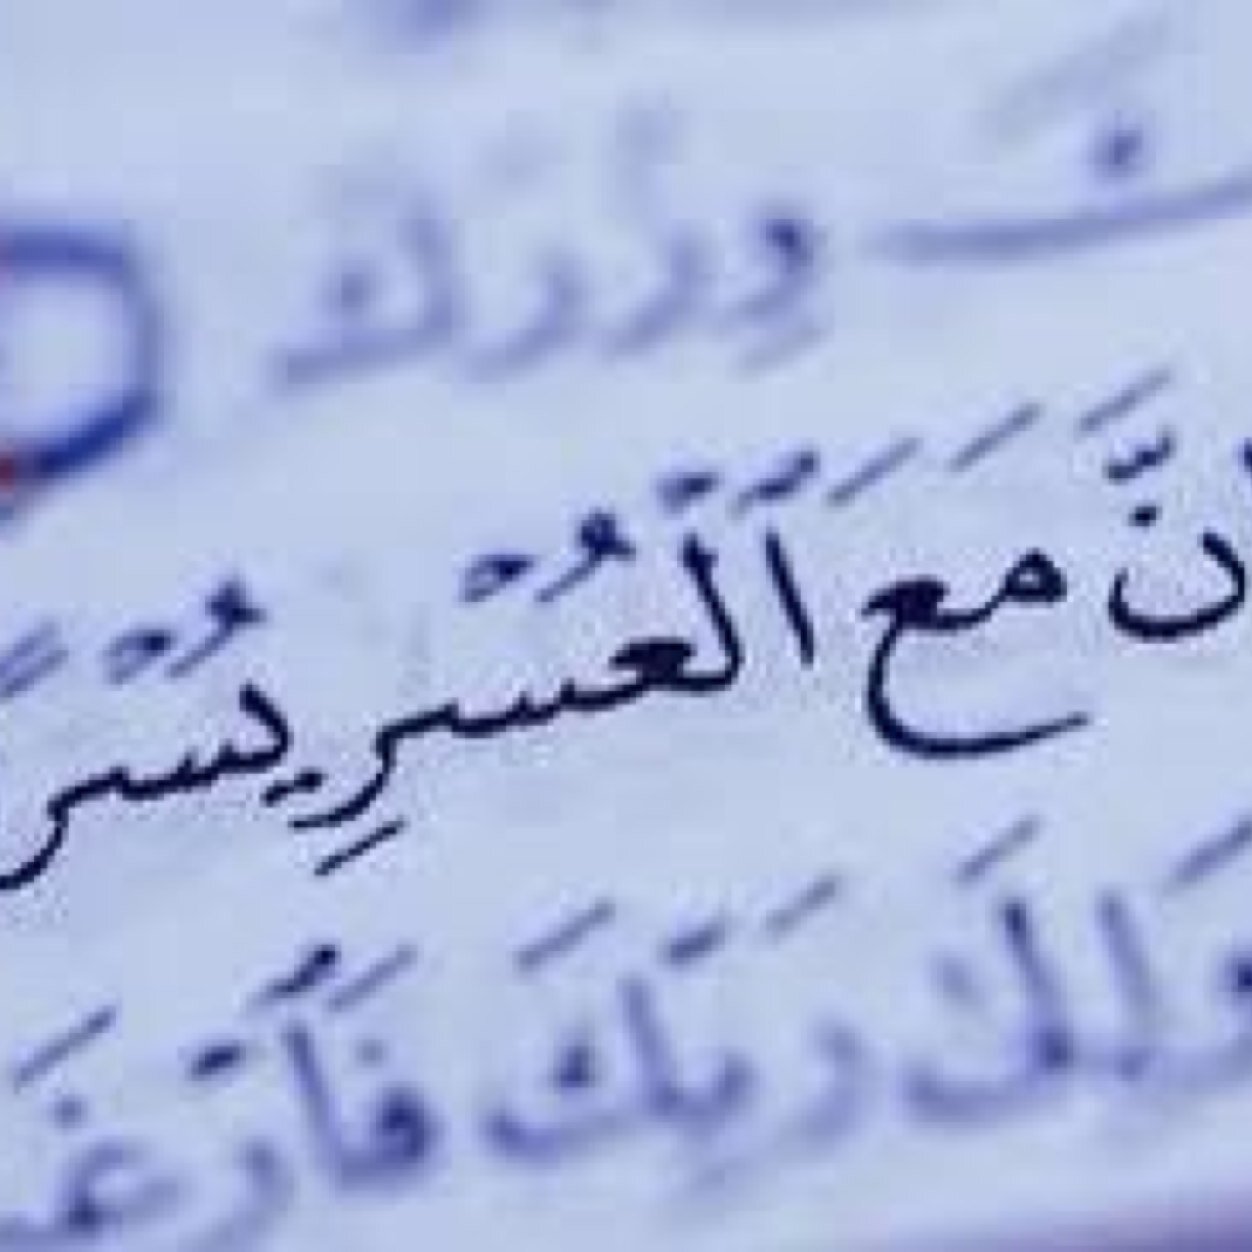 وِزْرَكَ
نَّ مَعَ ٱلْعُسْرِ يُسْرً
إِلَىٰ رَبِّكَ فَٱرْغَ